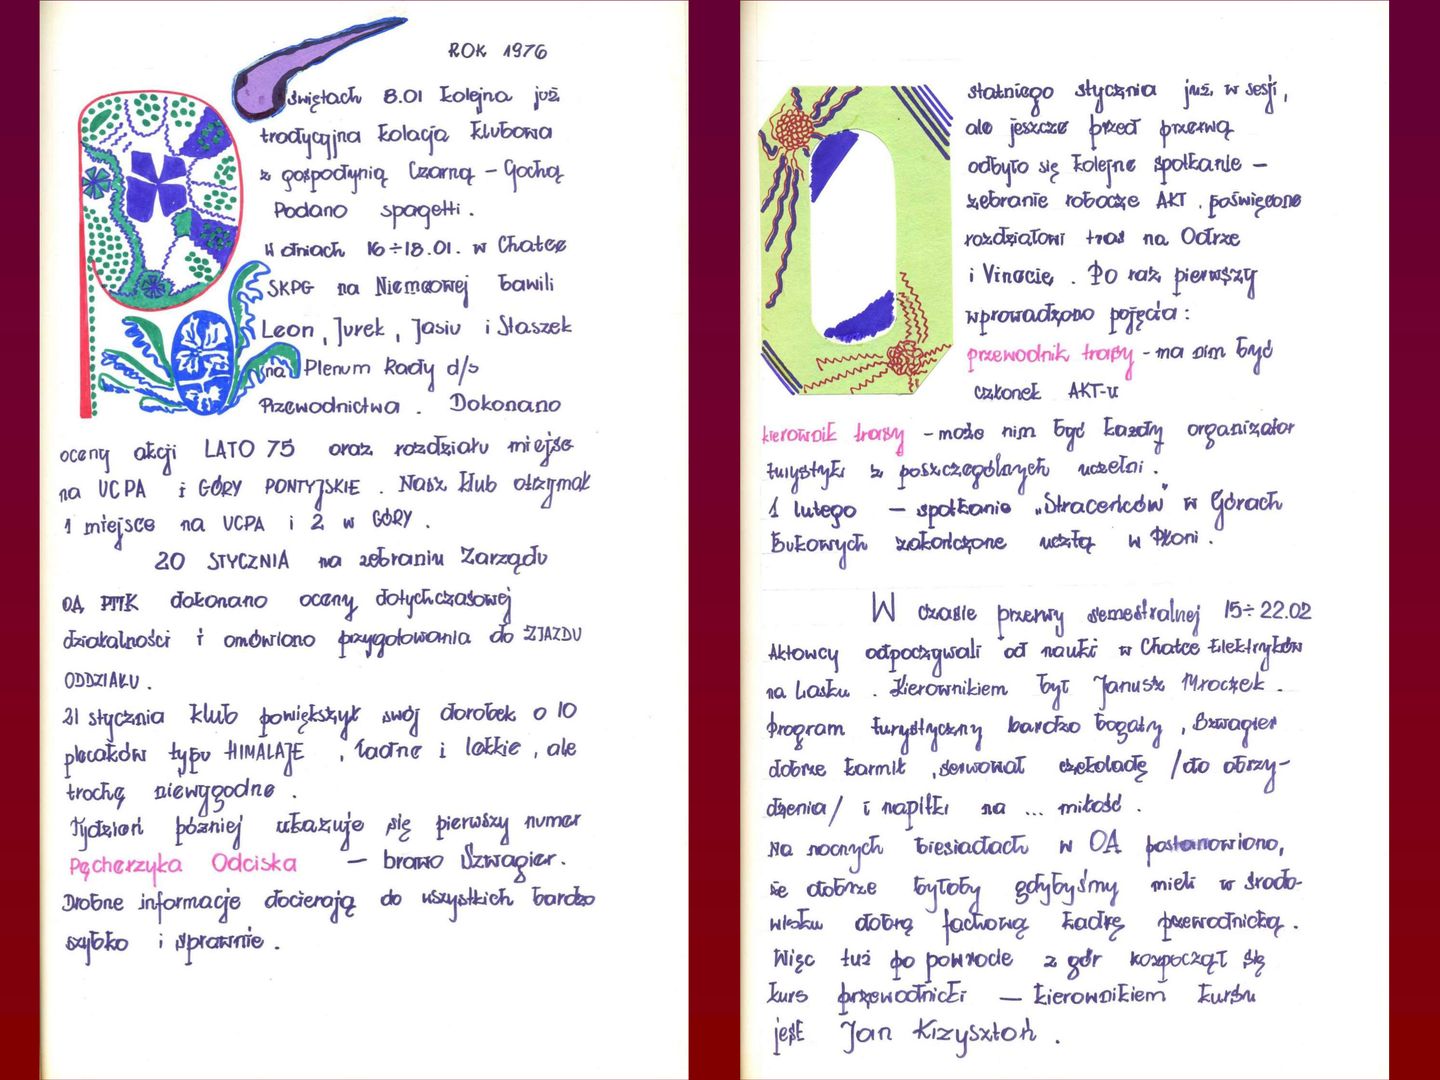 ROK 1976
Po świętach 8.01 kolejna już
tradycyjna kolacja klubowa
z gospodynią Czarną - Gochą
Podano spagetti.
W dniach 16÷18.01. w Chatce
SKPG na Niemcowej bawili
Leon, Jurek, Jasiu i Staszek
na Plenum Rady d/s
Przewodnictwa. Dokonano
oceny akcji LATO 75 oraz rozdziału miejsc
na UCPA i GÓRY PONTYJSKIE. Nasz klub otrzymał
1 miejsce na UCPA i 2 w GÓRY.
20 STYCZNIA na zebraniu Zarządu
OA PTTK dokonano oceny dotychczasowej
działalności i omówiono przygotowania do ZJAZDU
ODDZIAŁU.
21 stycznia klub powiększył swój dorobek o 10
plecaków typu HIMALAJE, ładne i lekkie, ale
trochę niewygodne.
Tydzień później ukazuje się pierwszy numer
Pęcherzyka Odciska — brawo Szwagier.
Drobne informacje docierają do wszystkich bardzo
szybko i sprawnie.
Ostatniego stycznia już w sesji,
ale jeszcze przed przerwą
odbyło się kolejne spotkanie -
zebranie robocze AKT. poświęcone
rozdziałowi tras na Odrze
i Vinecie. Po raz pierwszy
wprowadzono pojęcia:
przewodnik trasy - ma nim być
członek AKT-u
kierownik trasy - może nim być każdy organizator
turystyki z poszczególnych uczelni.
1 lutego - spotkanie „Straceńców" w Górach
Bukowych zakończone ucztą w Płoni.
W czasie przerwy semestralnej 15÷22.02
Aktowcy odpoczywali od nauki w Chatce Elektryków
na Lasku. Kierownikiem był Janusz Mroczek.
Program turystyczny bardzo bogaty, Szwagier
dobrze karmił, serwował czekoladę /do obrzy-
dzenia/ i napitki na ... miłość.
Na nocnych biesiadach w OA postanowiono,
że dobrze byłoby gdybyśmy mieli w środo-
wisku dobrą fachową kadrę przewodnicką.
Więc tuż po powrocie z gór rozpoczął się
kurs przewodnicki — kierownikiem kursu
jest Jan Krzysztoń.